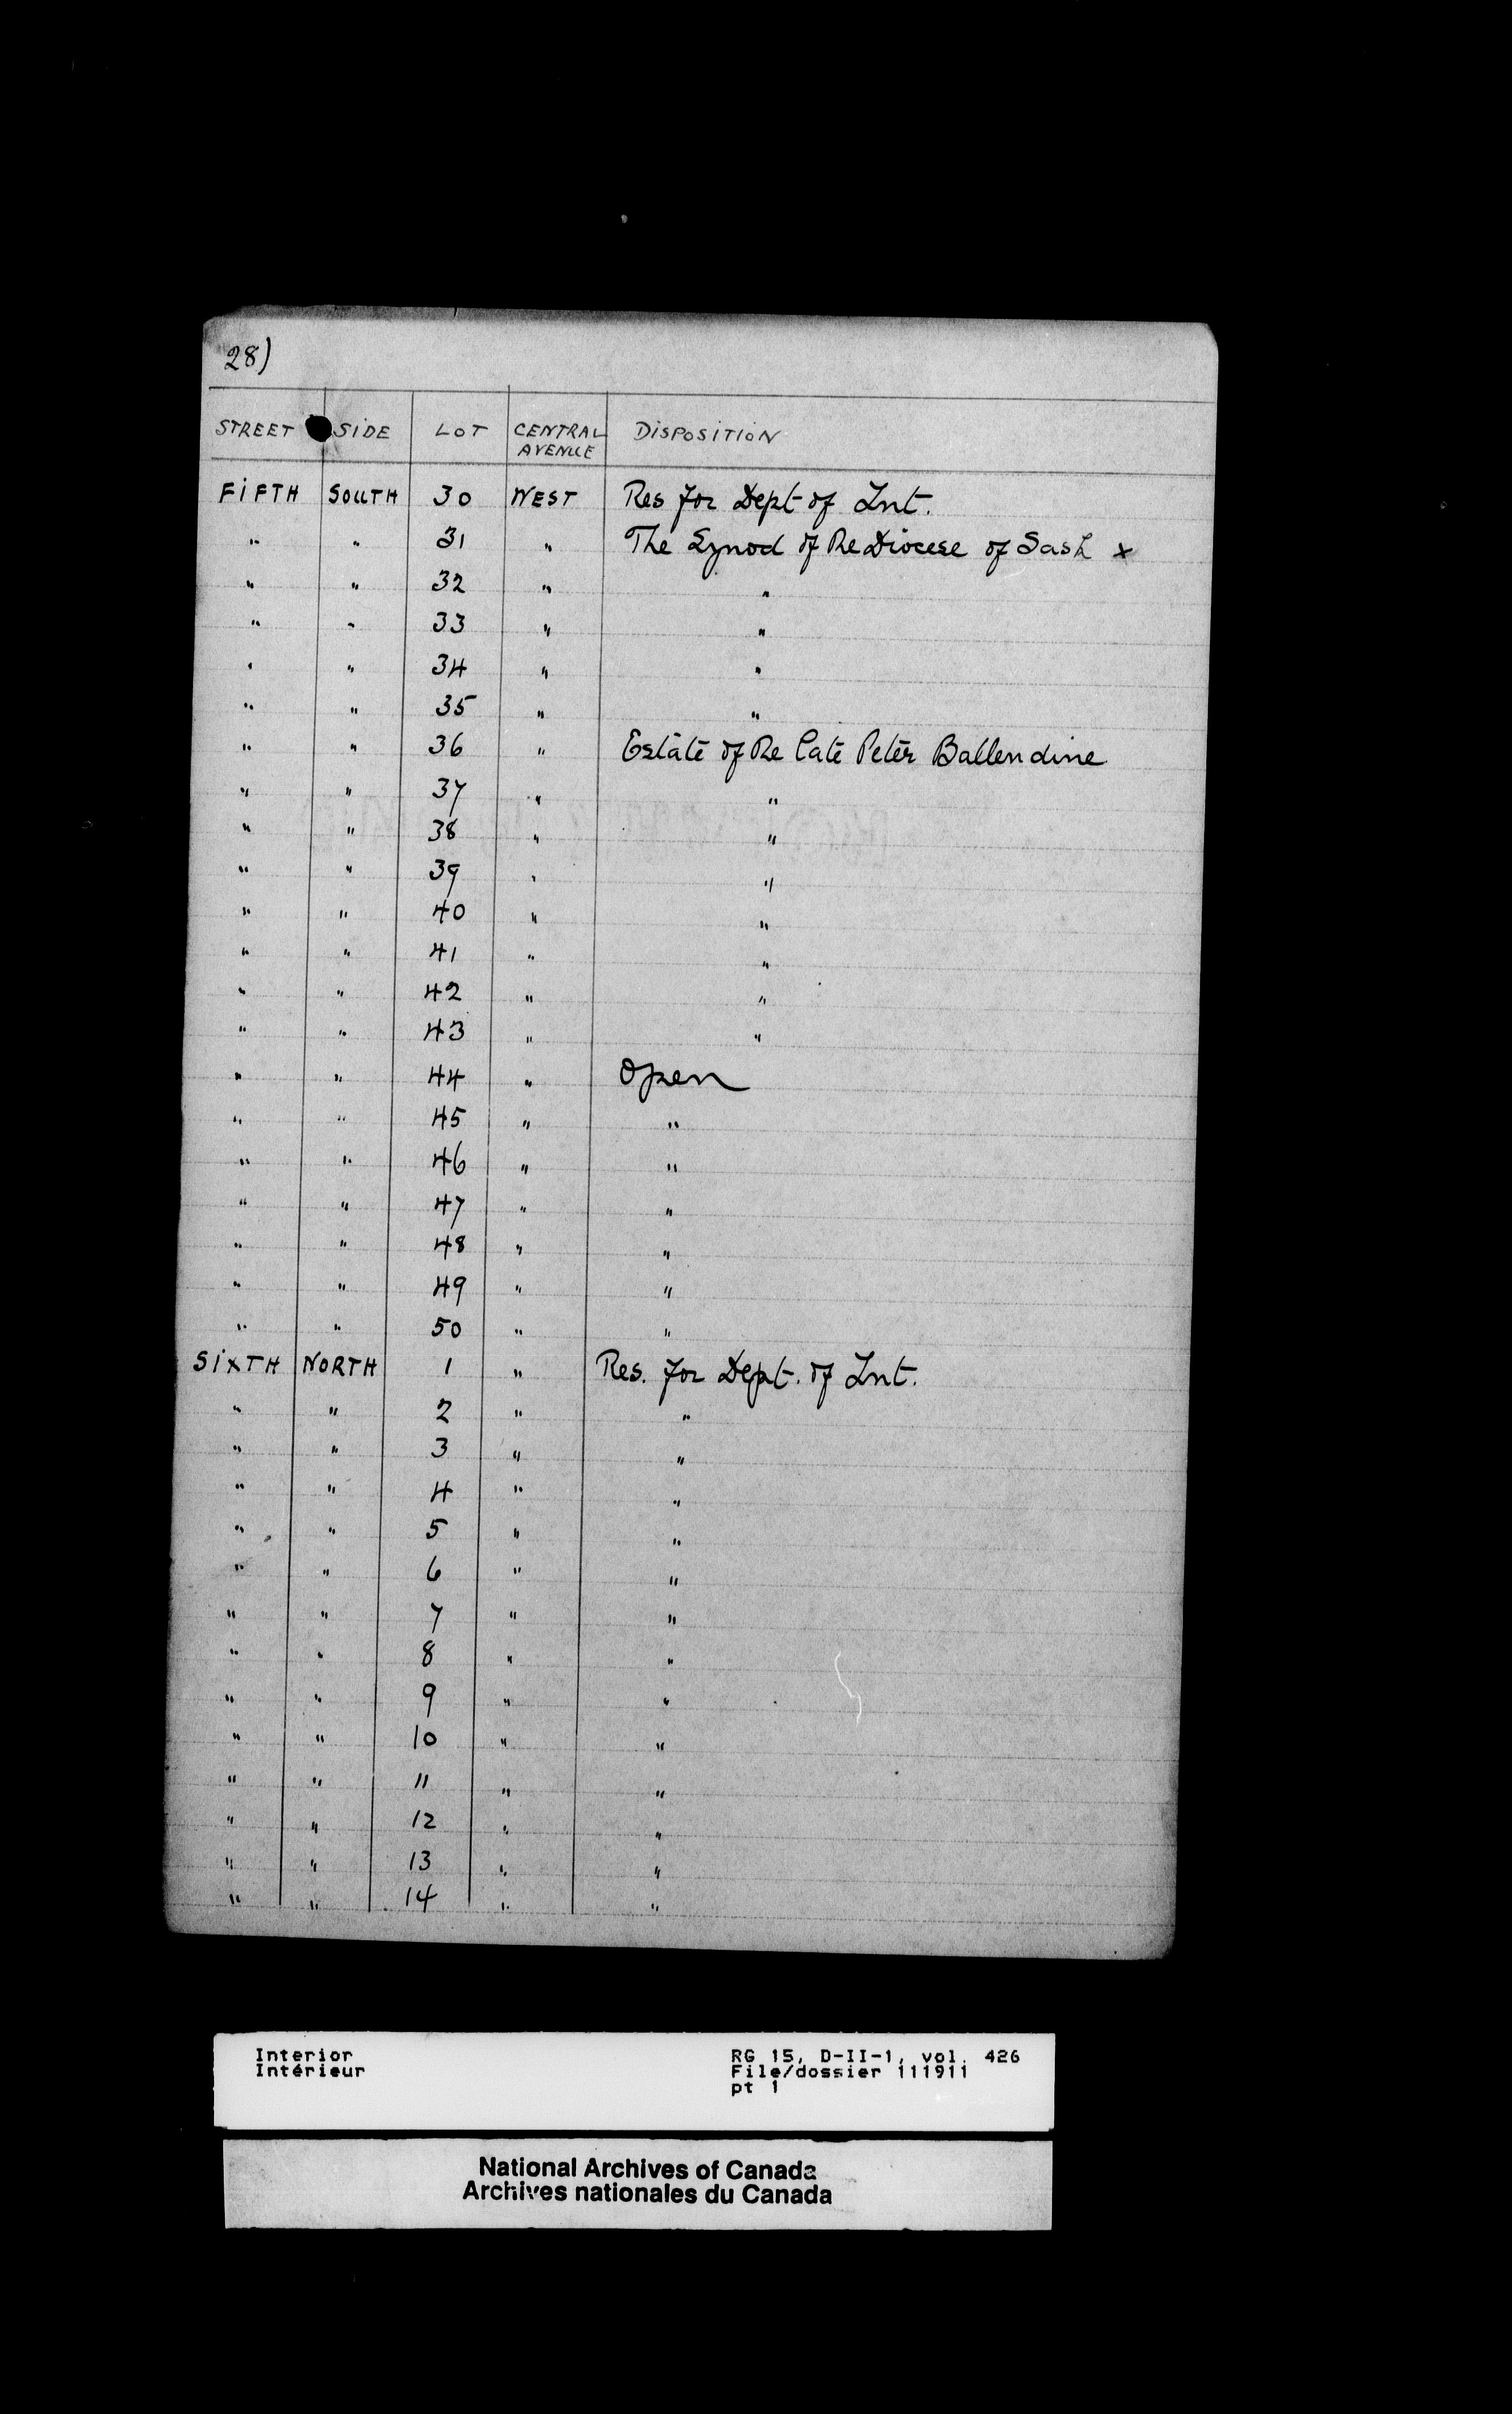 28)
STREET SIDE LOT CENTRAL AVENUE DISPOSITION
FIFTH SOUTH 30 WEST Res for Dept of Int.
" " 31 " The Synod of the Diocese of Sask x
" " 32 " "
" " 33 " "
" " 34 " "
" " 35 " "
" " 36 " Estate of the late Peter Ballendine
" " 37 " "
" " 38 " "
" " 39 " "
" " 40 " "
" " 41 " "
" " 42 " "
" " 43 " "
" " 44 " Open
" " 45 " "
" " 46 " "
" " 47 " "
" " 48 " "
" " 49 " "
" " 50 " "
SIXTH NORTH 1 " Res. for Dept. of Int.
" " 2 " "
" " 3 " "
" " 4 " "
" " 5 " "
" " 6 " "
" " 7 " "
" " 8 " "
" " 9 " "
" " 10 " "
" " 11 " "
" " 12 " "
" " 13 " "
" " 14 " "
Interior RG 15, D-II-1, vol. 426
Intérieur File/dossier 111911
pt 1
National Archives of Canada
Archives nationales du Canada